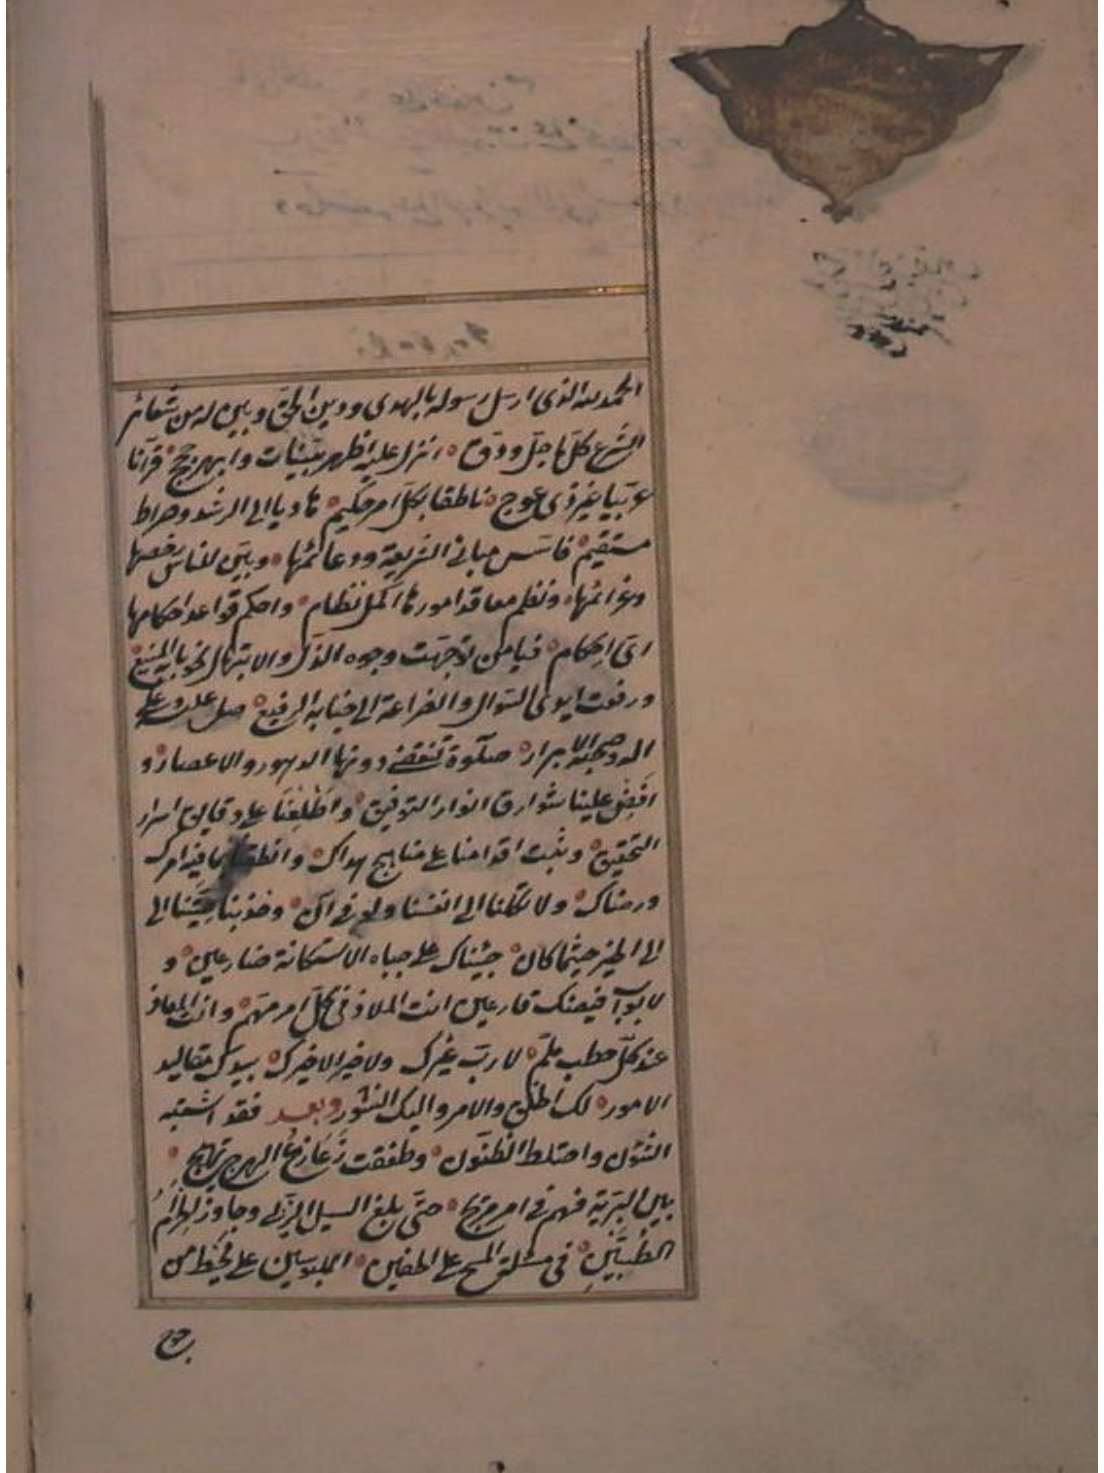 الحمد لله الذى ارسل رسوله بالهدى ودين الحق وبين له من شعائر
الشرع كل ما جل ودق ، انزل عليه اظهر بينات وابهر حجج ، قرآنا
عربيا غير ذى عوج ، ناطقا بكل امر حكيم ، هاديا الى الرشد وصراط
مستقيم ، فاسس مبانى الشريعة ودعائمها ، وبين للناس رخصها
وعزائمها ، ونظم معاقد امورها اكمل نظام ، واحكم قواعد احكامها
اى احكام ، فيا من توجهت وجوه الذل والابتهال نحو بابه المنيع
ورفعت ايدى السؤال والضراعة الى جنابه الرفيع ، صل عليه وعلى
اله وصحبه الابرار ، صلوة تنقضى دونها الدهور والاعصار ، و
افض علينا شوارق انوار التوفيق ، واطلعنا على دقايق اسرار
التحقيق ، وثبت اقدامنا على مناهج هداك ، وانطقنا بما فيه امرك
ورضاك ، ولا تكلنا الى انفسنا ولو فى آن ، وخذ بناصيتنا الى
الى الخير حيثما كان ، جئناك على جباه الاستكانة ضارعين ، و
لابواب فيضك قارعين انت الملاذ فى كل امر مهم ، وانت المعاذ
عند كل خطب ملم ، لا رب غيرك ولا خير الا خيرك ، بيدك مقاليد
الامور ، لك الخلق والامر واليك النشور وبعد فقد اشتبه
الشؤن واختلط الظنون ، وطفقت زعازع الهرج تهيج ،
بين البرية فهم فى امر مريج ، حتى بلغ السيل الزبى وجاوز الحزام
الطبيين ، فى مسئلة المسح على الخفين ، الملبوسين على مخيط من